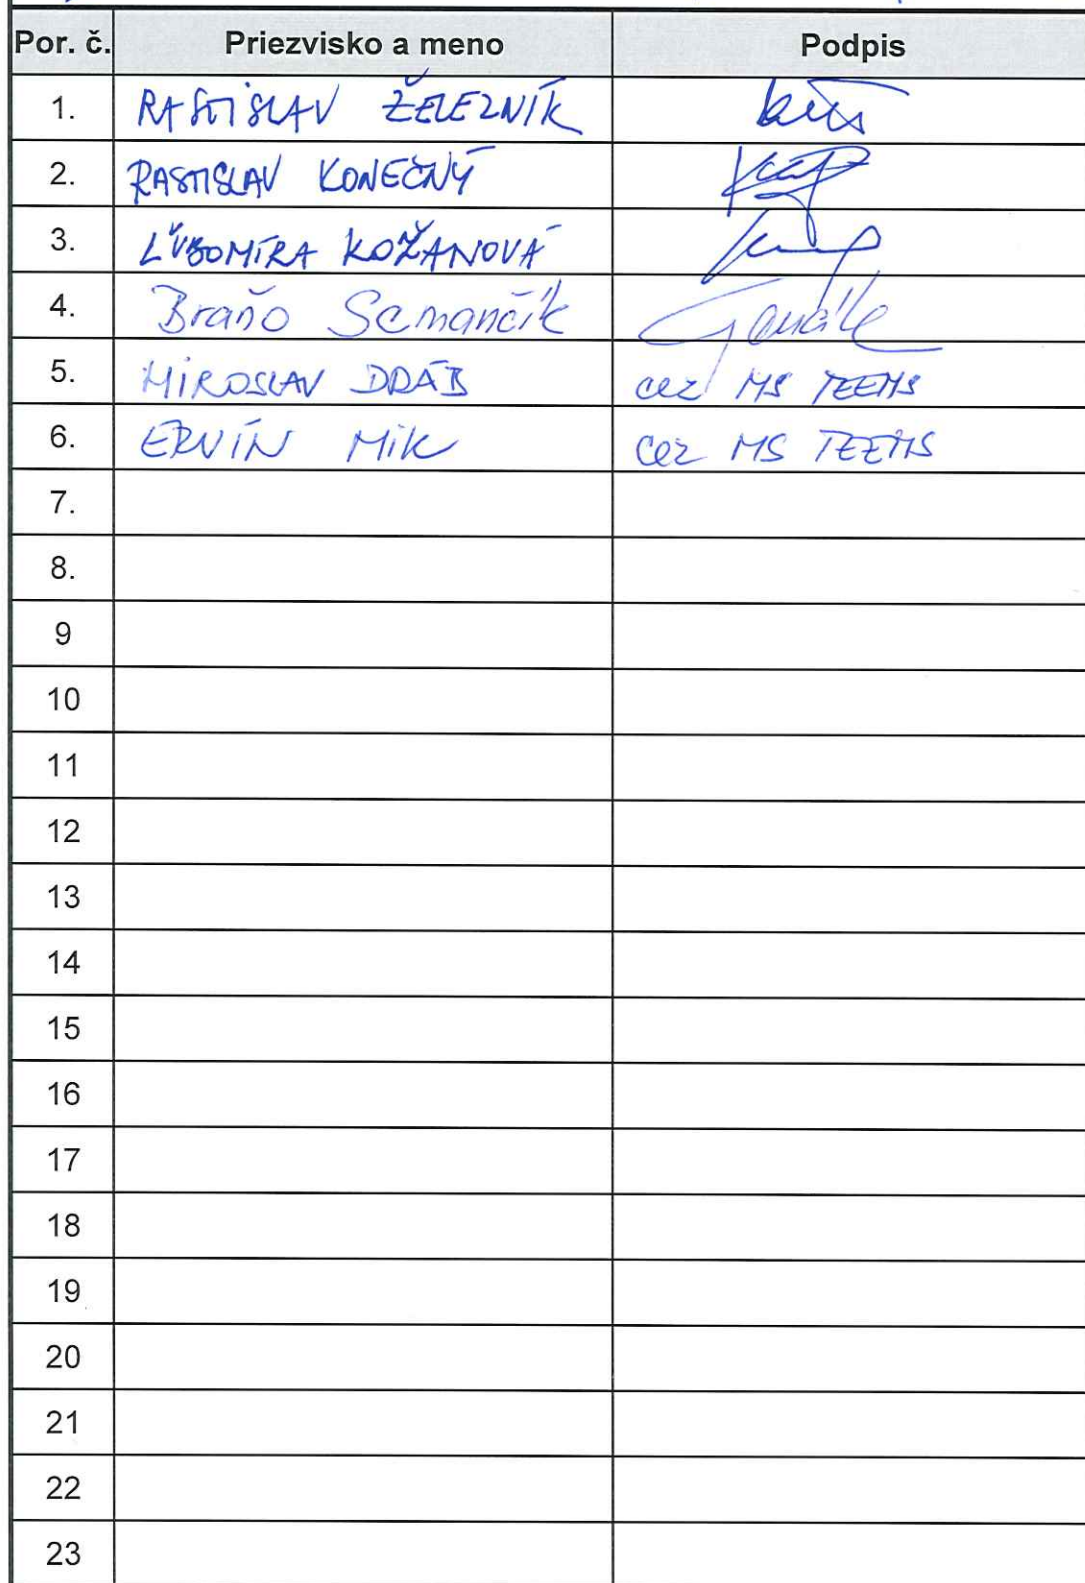 Por. č. Priezvisko a meno Podpis
1. RASTISLAV ŽELEZNÍK
2. RASTISLAV KONEČNÝ
3. ĽUBOMÍRA KOŽANOVÁ
4. Braňo Semančík
5. MIROSLAV DRÁB cez MS TEEMS
6. ERVÍN MIK cez MS TEEMS
7.
8.
9
10
11
12
13
14
15
16
17
18
19
20
21
22
23